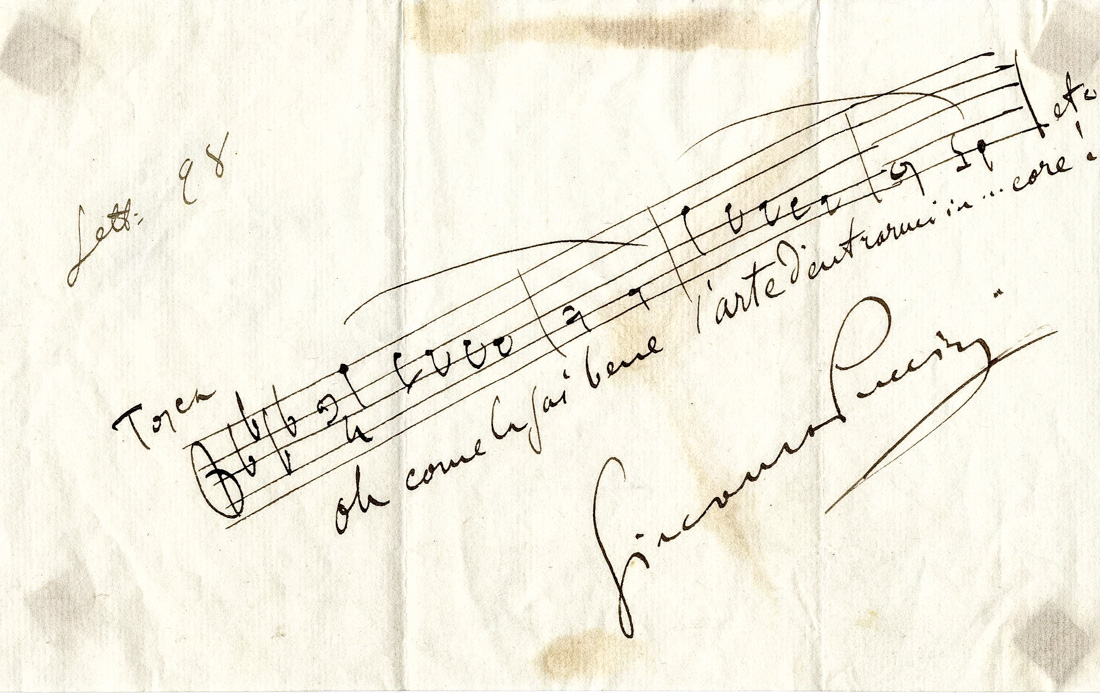 Sett: 98
Tosca
etc
oh come la sai bene l'arte d'entrarmi in... core!
Giacomo Puccini